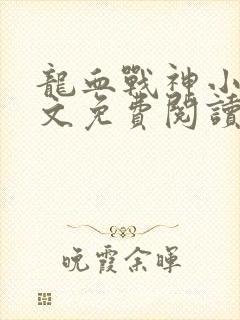 龍血戰神小
文免費閱讀
晚霞余暉